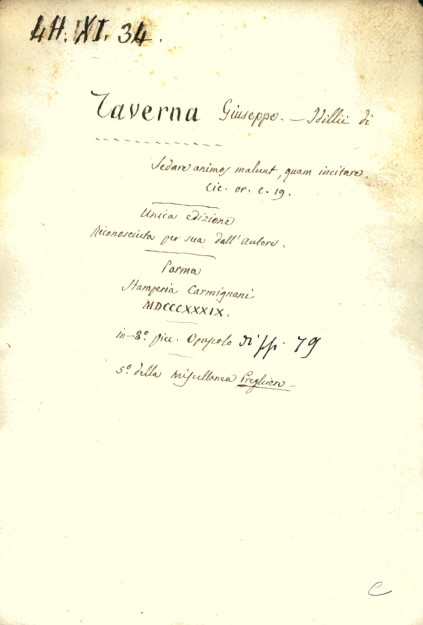 4H. XI. 34.
Taverna Giuseppe. — Idillii di
Sedare animos malunt, quam incitare.
Cic. or. c. 19.
Unica edizione
riconosciuta per sua dall'autore.
Parma
Stamperia Carmignani
MDCCCXXXIX.
in-8.º picc. Opuscolo di pp. 79
5.º della miscellanea Preghiere —
C